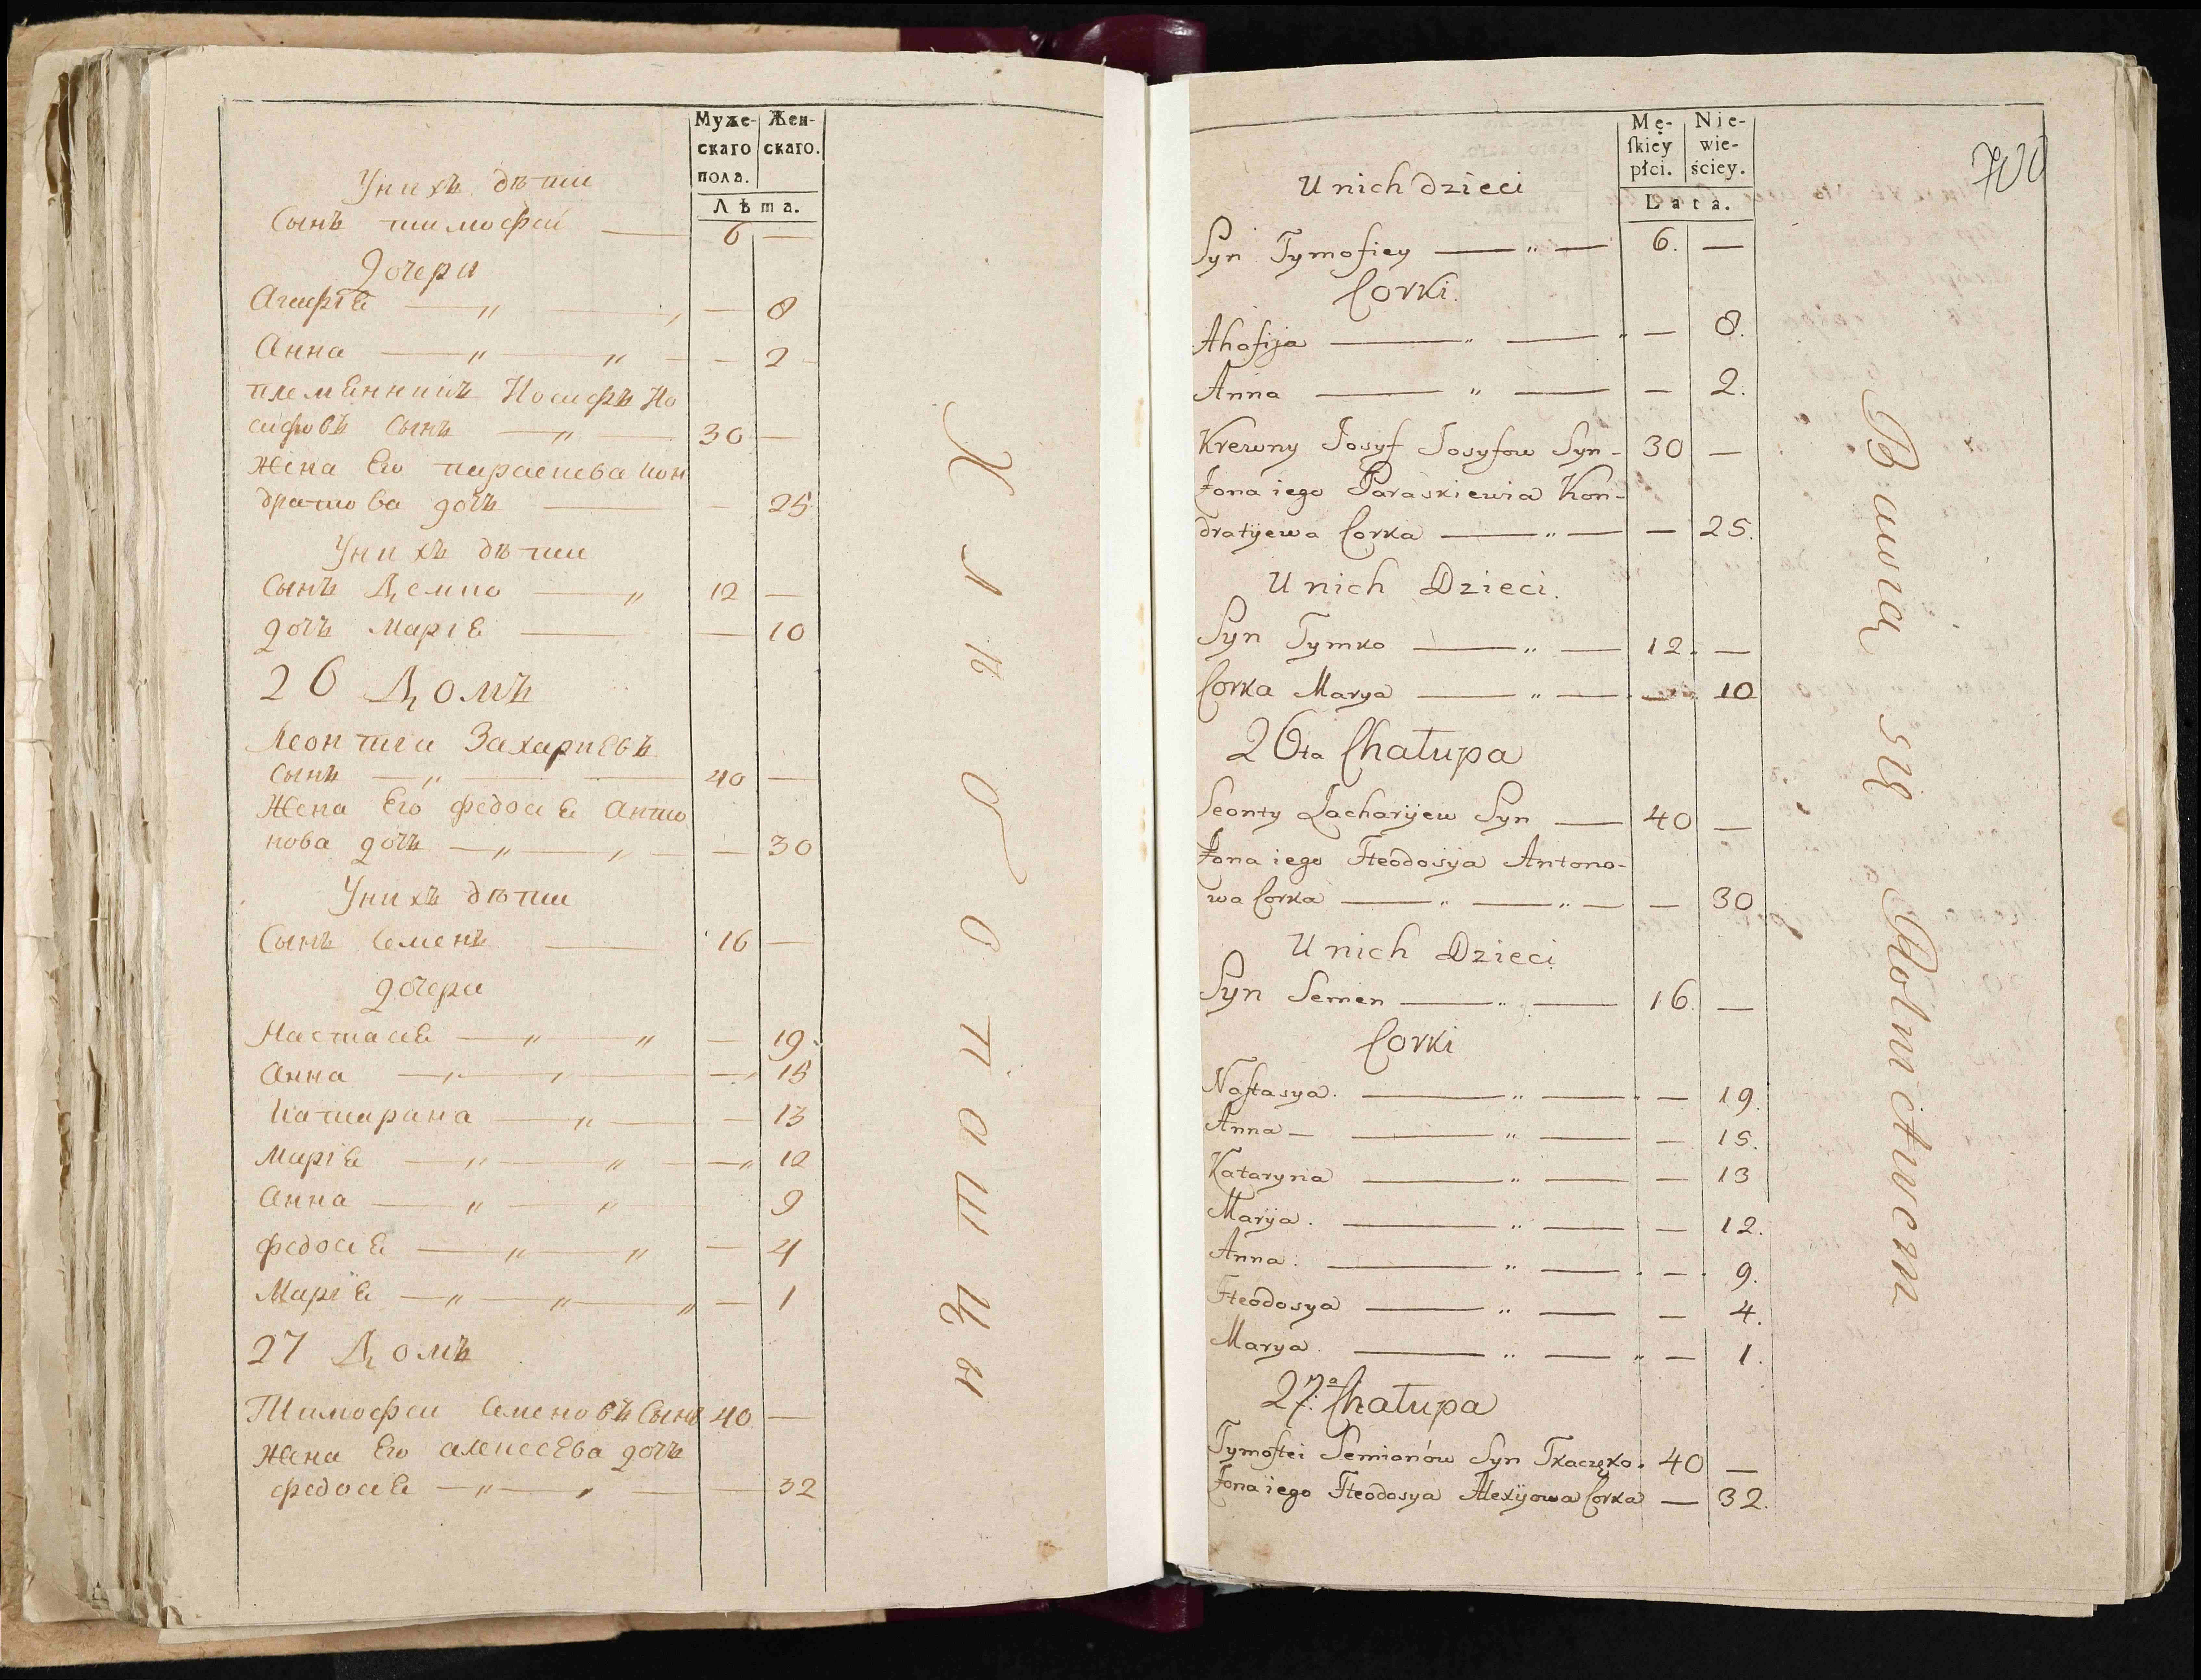 Муже-
скаго
пола.
Жен-
скаго.
Лѣта.
Унихъ дѣти
Сынъ тимофей — 6 —
Дочери
Агафіѣ — „ — — 8
Анна — „ „ — — 2
племѣнникъ Иосифъ Ио
сифовъ Сынъ — „ — 30 —
Жена Его параскева кон
дратова дочь — — 25
Унихъ дѣти
Сынъ Демко — „ 12 —
дочь Маріѣ — — 10
26 Домъ
Леонтиа Захариевъ
Сынъ — „ — — 40 —
Жена Его федосіѣ анто
нова дочь — „ — „ — — 30
Унихъ дѣти
Сынъ Семенъ — 16 —
дочери
Настасіѣ — „ — „ — 19
Анна — „ — — 15
Катарана — „ — — 13
Маріѣ — „ — „ — — „ 12
Анна — „ — „ — 9
федосіѣ — „ — „ — 4
Маріѣ — „ — „ — „ — 1
27 Домъ
Тимофеи Семеновъ Сынъ 40 —
Жена Его алексеева дочь
федосіѣ — „ — „ — — 32
Хлѣбопашцы
Mę-
ſkiey
płci.
Nie-
wie-
ściey.
Lata.
700
U nich dzieci
Syn Tymofiey — „ — 6. —
Corki.
Ahafija — „ — „ — 8.
Anna — „ — — 2.
Krewny Josyf Josyfow Syn - 30 —
Żona iego Paraskiewia Kon-
dratyewa Corka — „ — — 25.
U nich Dzieci.
Syn Tymko — „ — 12. —
Corka Marya — „ — — 10
26ta Chałupa
Leonty Zacharyjew Syn — 40 —
Żona iego Fteodosya Antono-
wa Corka — „ — „ — — 30
U nich Dzieci
Syn Semen — „ — 16. —
Corki
Naſtasya. — „ — — 19.
Anna — — „ — — 15.
Kataryna — „ — — 13
Marya. — „ — — 12.
Anna: — „ — — 9.
Fteodosya — „ — — 4.
Marya. — „ — „ — 1.
27.ma Chałupa
Tymoftei Semionów Syn Tkaczęko. 40 —
Żona iego Fteodosya Alexyowa Corka — 32.
Bawią się Rolnictwem